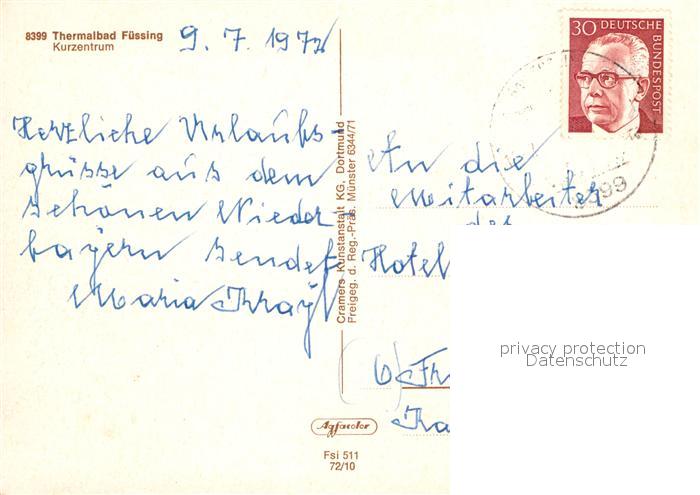 8399 Thermalbad Füssing
Kurzentrum
9. 7. 1972
Herzliche Urlaubs-
grüsse aus dem
schönen Nieder-
bayern sendet
Maria
Cramers Kunstanstalt KG, Dortmund
Freigeg. d. Reg.-Präs. Münster 6344/71
30 DEUTSCHE
BUNDESPOST
8399
An die
Mitarbeiter
des
Hotel
6 Fr
privacy protection
Datenschutz
Agfacolor
Fsi 511
72/10